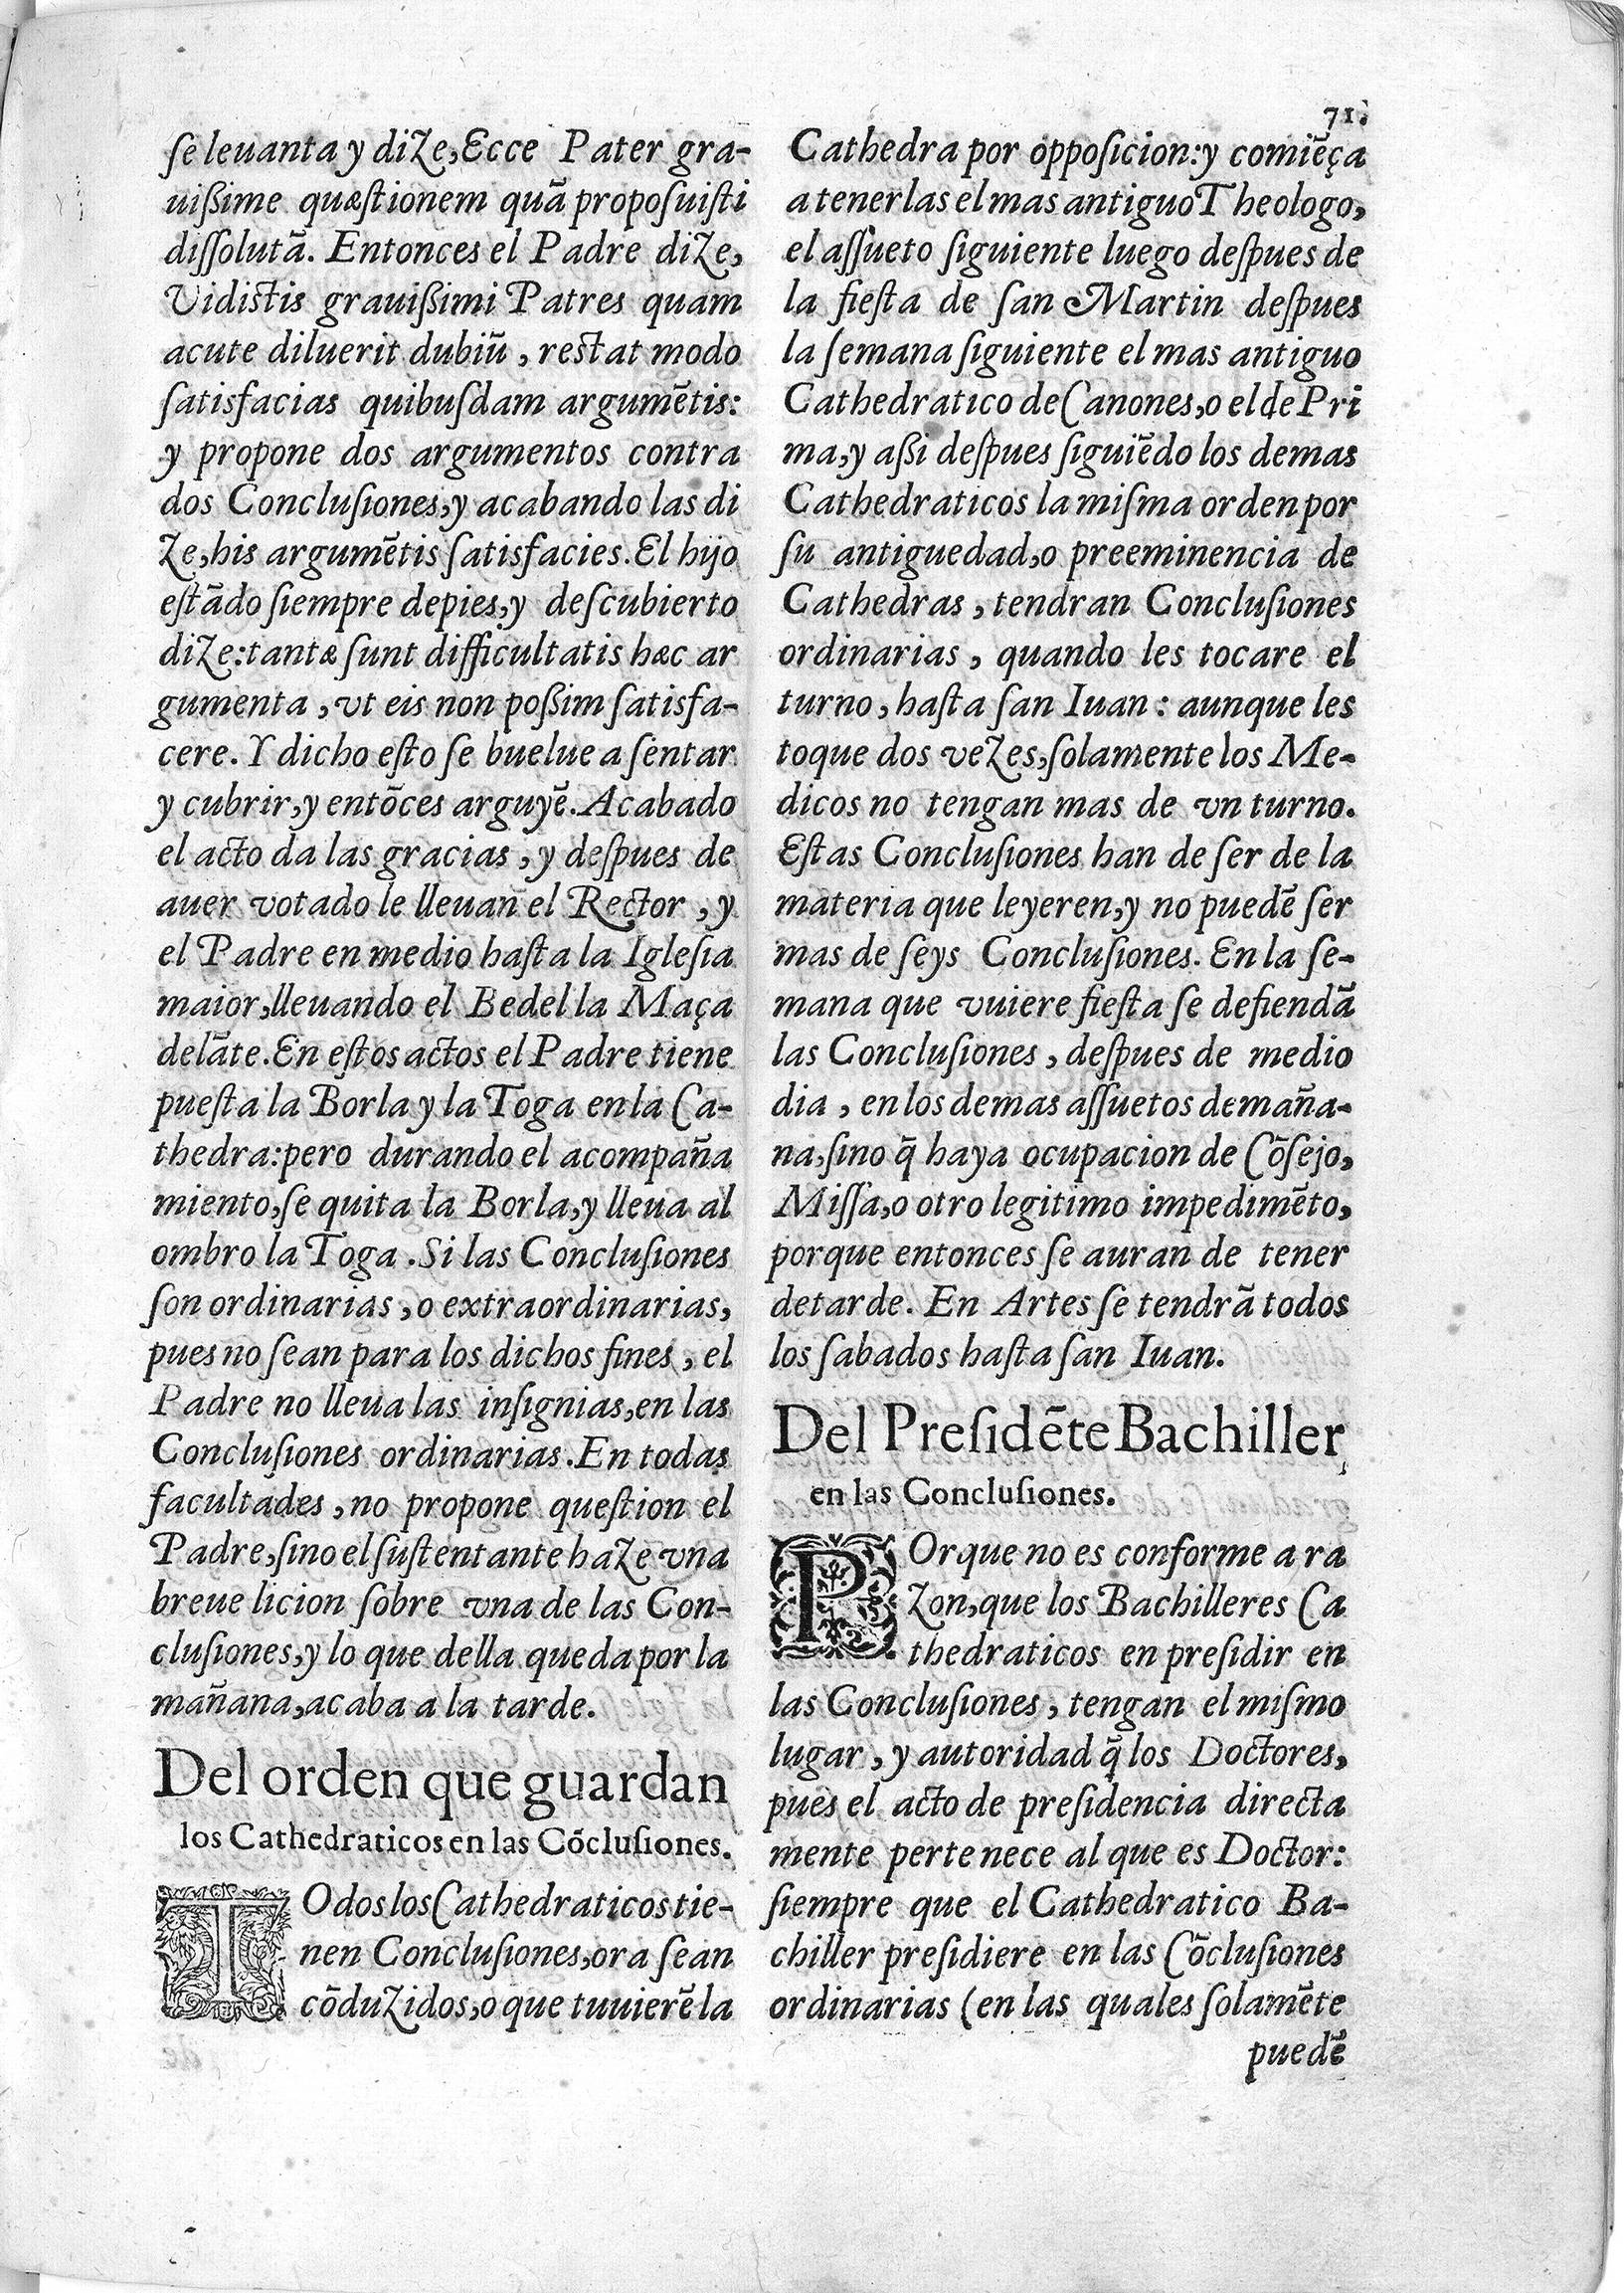 71.
ſe leuanta y dize, Ecce Pater gra-
uiſsime quæſtionem quā propoſuiſti
diſſolutā. Entonces el Padre dize,
Vidiſtis grauiſsimi Patres quam
acute diluerit dubiũ, reſtat modo
ſatisfacias quibuſdam argumētis:
y propone dos argumentos contra
dos Concluſiones, y acabando las di
ze, his argumētis ſatisfacies. El hijo
eſtādo ſiempre depies, y deſcubierto
dize: tantæ ſunt difficultatis hæc ar
gumenta, vt eis non poſsim ſatisfa-
cere. Y dicho eſto ſe buelue a ſentar
y cubrir, y entōces arguyē. Acabado
el acto da las gracias, y deſpues de
auer votado le lleuan el Rector, y
el Padre en medio haſta la Igleſia
maior, lleuando el Bedel la Maça
delāte. En eſtos actos el Padre tiene
pueſta la Borla y la Toga en la Ca-
thedra: pero durando el acompaña
miento, ſe quita la Borla, y lleua al
ombro la Toga. Si las Concluſiones
ſon ordinarias, o extraordinarias,
pues no ſean para los dichos fines, el
Padre no lleua las inſignias, en las
Concluſiones ordinarias. En todas
facultades, no propone queſtion el
Padre, ſino el ſuſtentante haze vna
breue licion ſobre vna de las Con-
cluſiones, y lo que della queda por la
mañana, acaba a la tarde.
Del orden que guardan
los Cathedraticos en las Cōcluſiones.
TOdos los Cathedraticos tie-
nen Concluſiones, ora ſean
cōduzidos, o que tuuierē la
Cathedra por oppoſicion: y comiēça
a tenerlas el mas antiguo Theologo,
el aſſueto ſiguiente luego deſpues de
la fieſta de ſan Martin deſpues
la ſemana ſiguiente el mas antiguo
Cathedratico de Canones, o el de Pri
ma, y aſsi deſpues ſiguiēdo los demas
Cathedraticos la miſma orden por
ſu antiguedad, o preeminencia de
Cathedras, tendran Concluſiones
ordinarias, quando les tocare el
turno, haſta ſan Iuan: aunque les
toque dos vezes, ſolamente los Me-
dicos no tengan mas de vn turno.
Eſtas Concluſiones han de ſer de la
materia que leyeren, y no puedē ſer
mas de ſeys Concluſiones. En la ſe-
mana que vuiere fieſta ſe defiendā
las Concluſiones, deſpues de medio
dia, en los demas aſſuetos de maña-
na, ſino q̄ haya ocupacion de Cōſejo,
Miſſa, o otro legitimo impedimēto,
porque entonces ſe auran de tener
de tarde. En Artes ſe tendrā todos
los ſabados haſta ſan Iuan.
Del Preſidēte Bachiller
en las Concluſiones.
POrque no es conforme a ra
zon, que los Bachilleres Ca
thedraticos en preſidir en
las Concluſiones, tengan el miſmo
lugar, y autoridad q̄ los Doctores,
pues el acto de preſidencia directa
mente pertenece al que es Doctor:
ſiempre que el Cathedratico Ba-
chiller preſidiere en las Cōcluſiones
ordinarias (en las quales ſolamēte
puedē